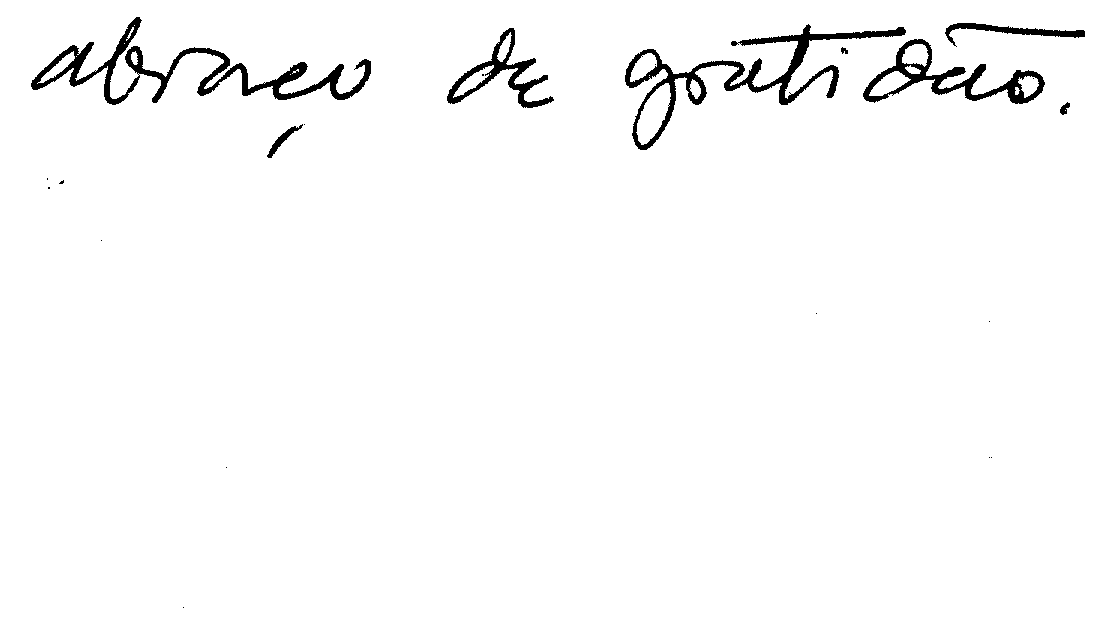 abraço de gratidão.